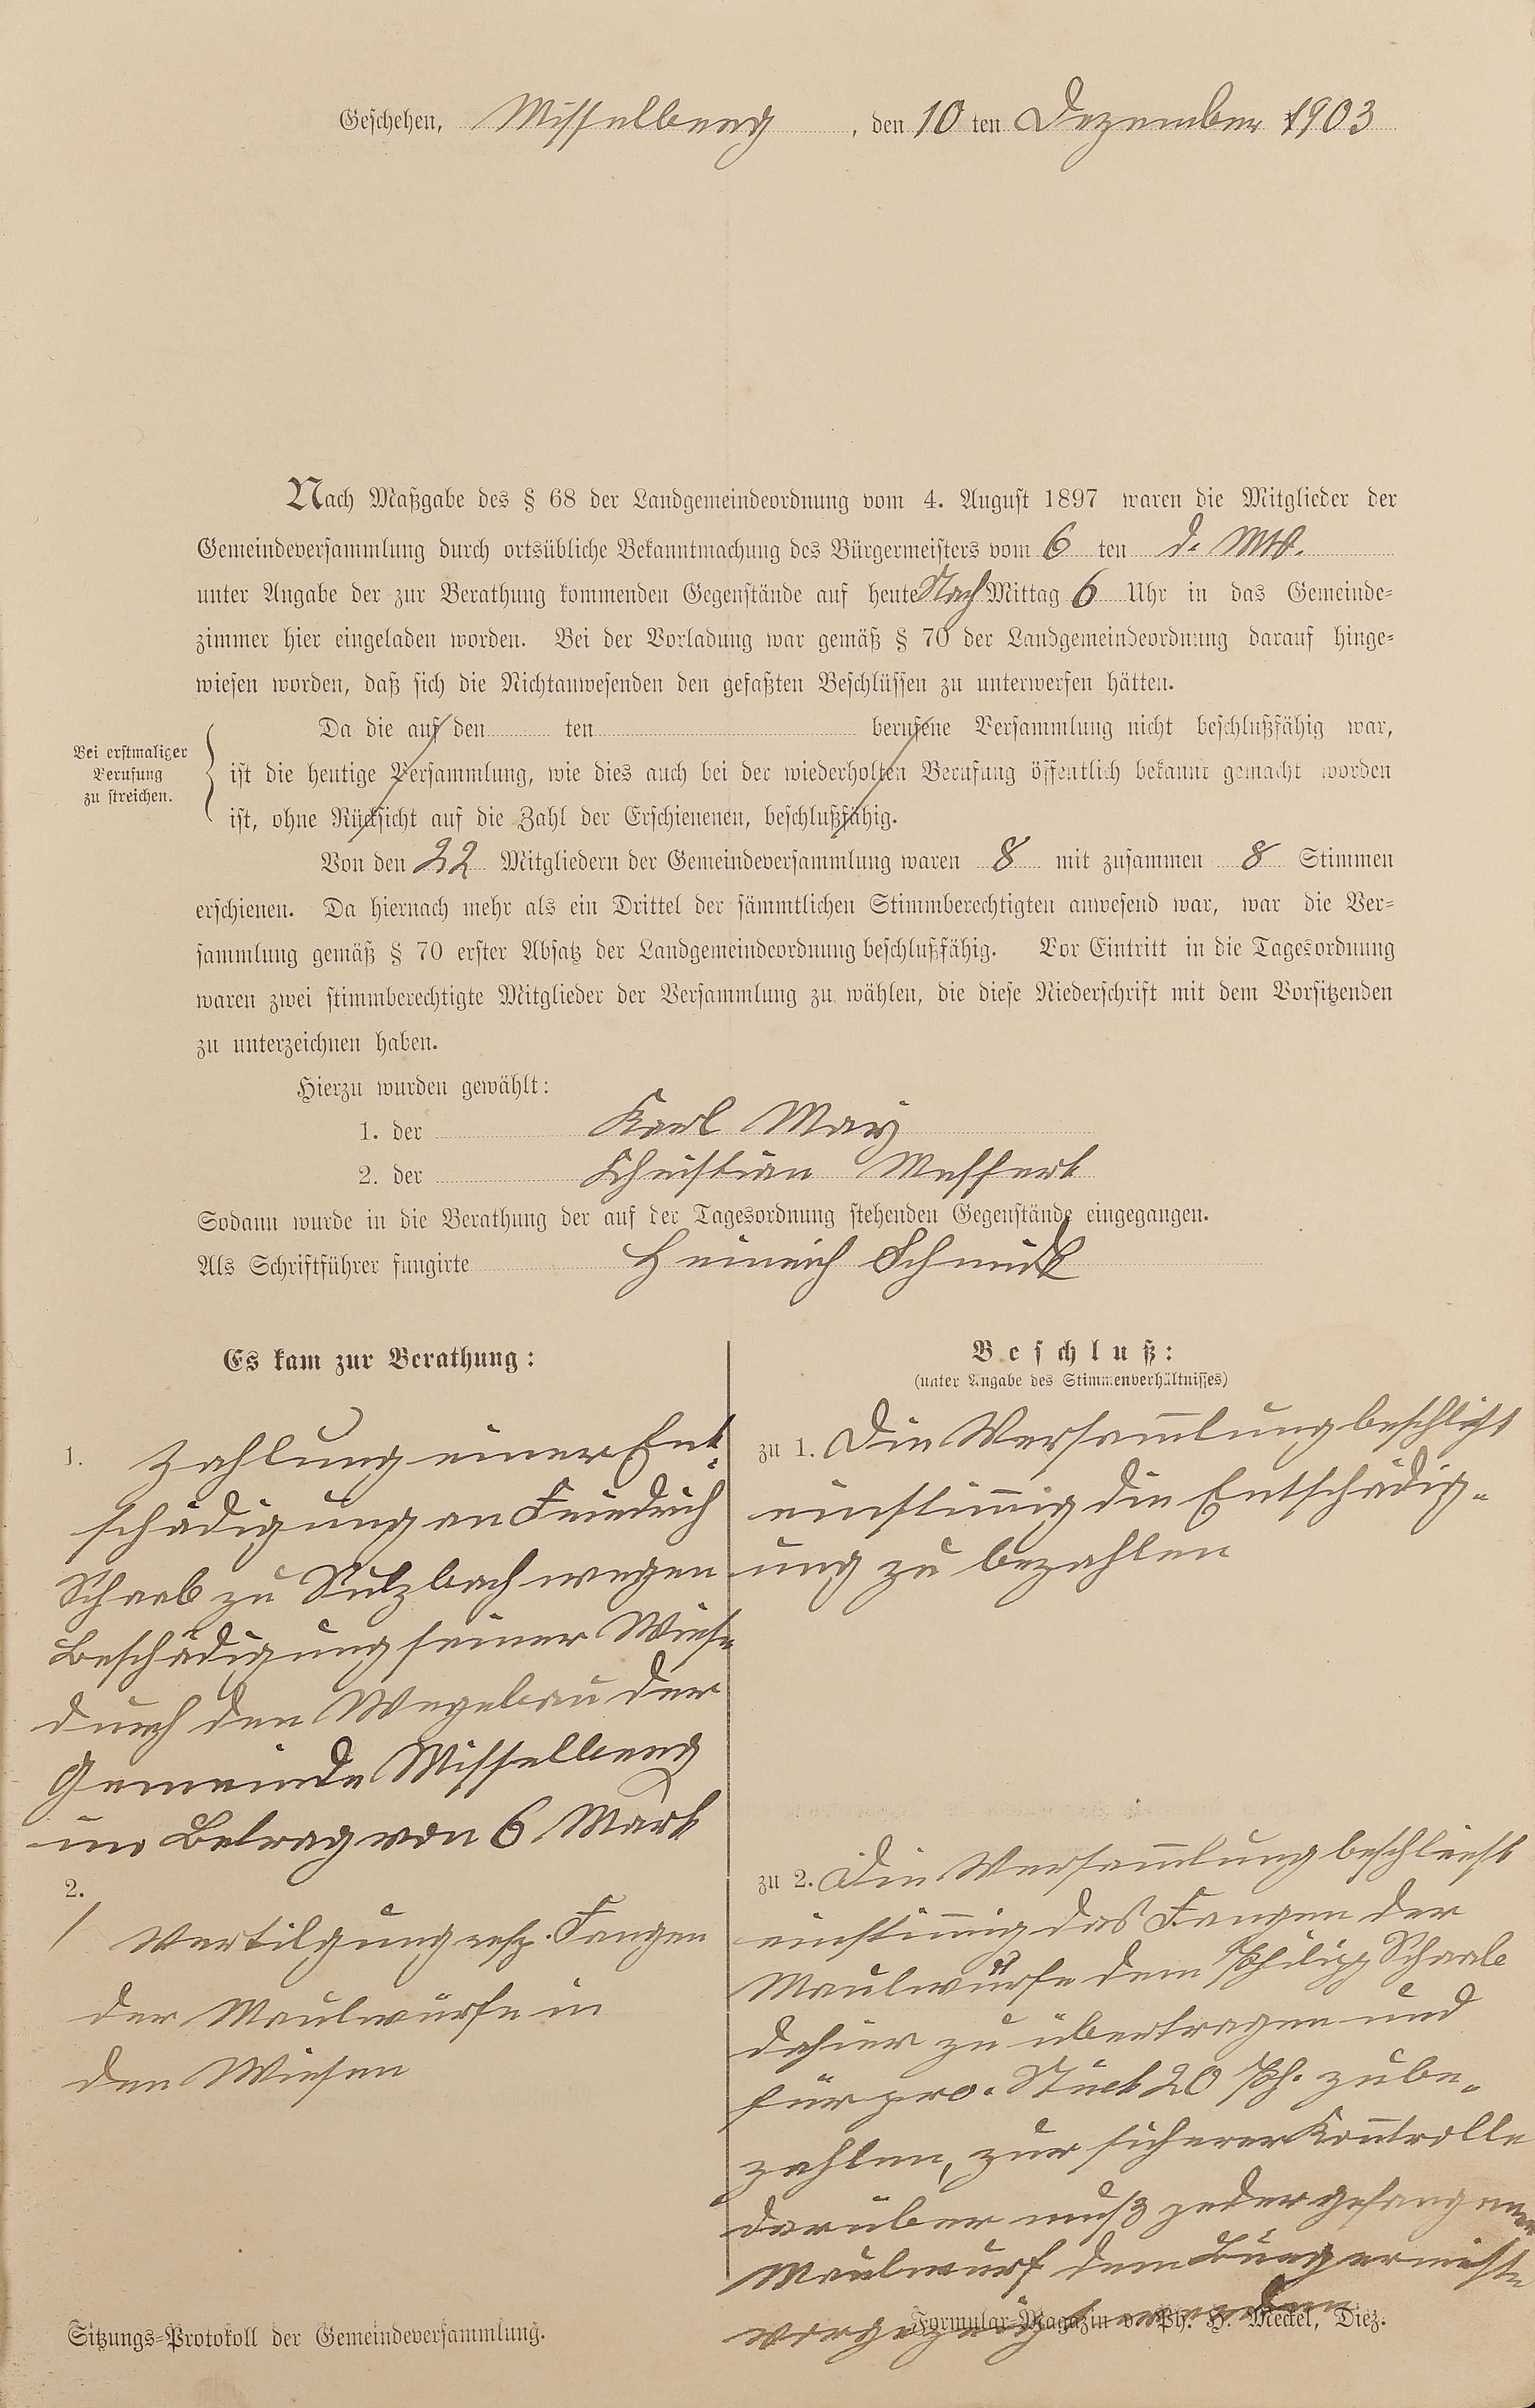 Geschehen, Misselberg, den 10 ten Dezember 1903
Nach Maßgabe des § 68 der Landgemeindeordnung vom 4. August 1897 waren die Mitglieder der
Gemeindeversammlung durch ortsübliche Bekanntmachung des Bürgermeisters vom 6 ten d. Mts.
unter Angabe der zur Berathung kommenden Gegenstände auf heute Nach Mittag 6 Uhr in das Gemeinde=
zimmer hier eingeladen worden. Bei der Vorladung war gemäß § 70 der Landgemeindeordnung darauf hinge=
wiesen worden, daß sich die Nichtanwesenden den gefaßten Beschlüssen zu unterwerfen hätten.
Bei erstmaliger
Berufung
zu streichen.
Da die auf den ten berufene Versammlung nicht beschlußfähig war,
ist die heutige Versammlung, wie dies auch bei der wiederholten Berufung öffentlich bekannt gemacht worden
ist, ohne Rücksicht auf die Zahl der Erschienenen, beschlußfähig.
Von den 22 Mitgliedern der Gemeindeversammlung waren 8 mit zusammen 8 Stimmen
erschienen. Da hiernach mehr als ein Drittel der sämmtlichen Stimmberechtigten anwesend war, war die Ver=
sammlung gemäß § 70 erster Absatz der Landgemeindeordnung beschlußfähig. Vor Eintritt in die Tagesordnung
waren zwei stimmberechtigte Mitglieder der Versammlung zu wählen, die diese Niederschrift mit dem Vorsitzenden
zu unterzeichnen haben.
Hierzu wurden gewählt:
1. der Karl May
2. der Christian Meffert
Sodann wurde in die Berathung der auf der Tagesordnung stehenden Gegenstände eingegangen.
Als Schriftführer fungirte Heinrich Schmidt
Es kam zur Berathung:
1. Zahlung einer Ent-
schädigung an Friedrich
Schaab zu Sulzbach wegen
Beschädigung seiner Wiese
durch den Wegebau der
Gemeinde Misselberg
im Betrag von 6 Mark
2.
Vertilgung resp. Fangen
der Maulwürfe in
den Wiesen
Beschluß:
(unter Angabe des Stimmenverhältnisses)
zu 1. Die Versam̅lung beschließt
einstim̅ig die Entschädig-
ung zu bezahlen
zu 2. Die Versam̅lung beschließt
einstim̅ig das Fangen der
Maulwürfe dem Philipp Schaab
dahier zu übertragen und
für pro. Stück 20 Pf. zu be-
zahlen, zur sicherer Kontrolle
darüber muß jeder gefangene
Maulwurf dem Bürgermeister
vorgezeigt werden
Sitzungs=Protokoll der Gemeindeversammlung.
Formular=Magazin v. Ph. H. Meckel, Diez.